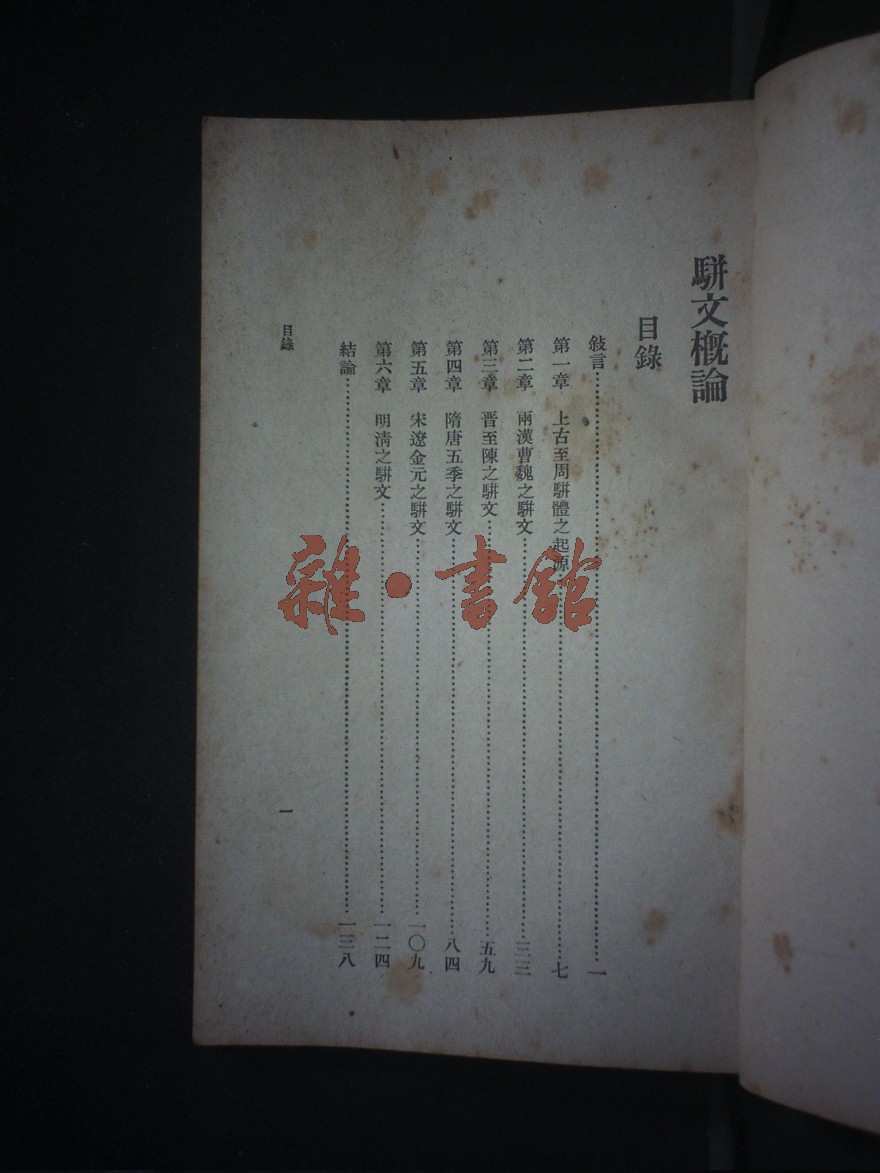 駢文概論
目錄
敍言………一
第一章 上古至周駢體之起源………七
第二章 兩漢曹魏之駢文………三三
第三章 晋至陳之駢文………五九
第四章 隋唐五季之駢文………八四
第五章 宋遼金元之駢文………一〇九
第六章 明淸之駢文………一二四
結論………一三八
目錄
一
雜·書館